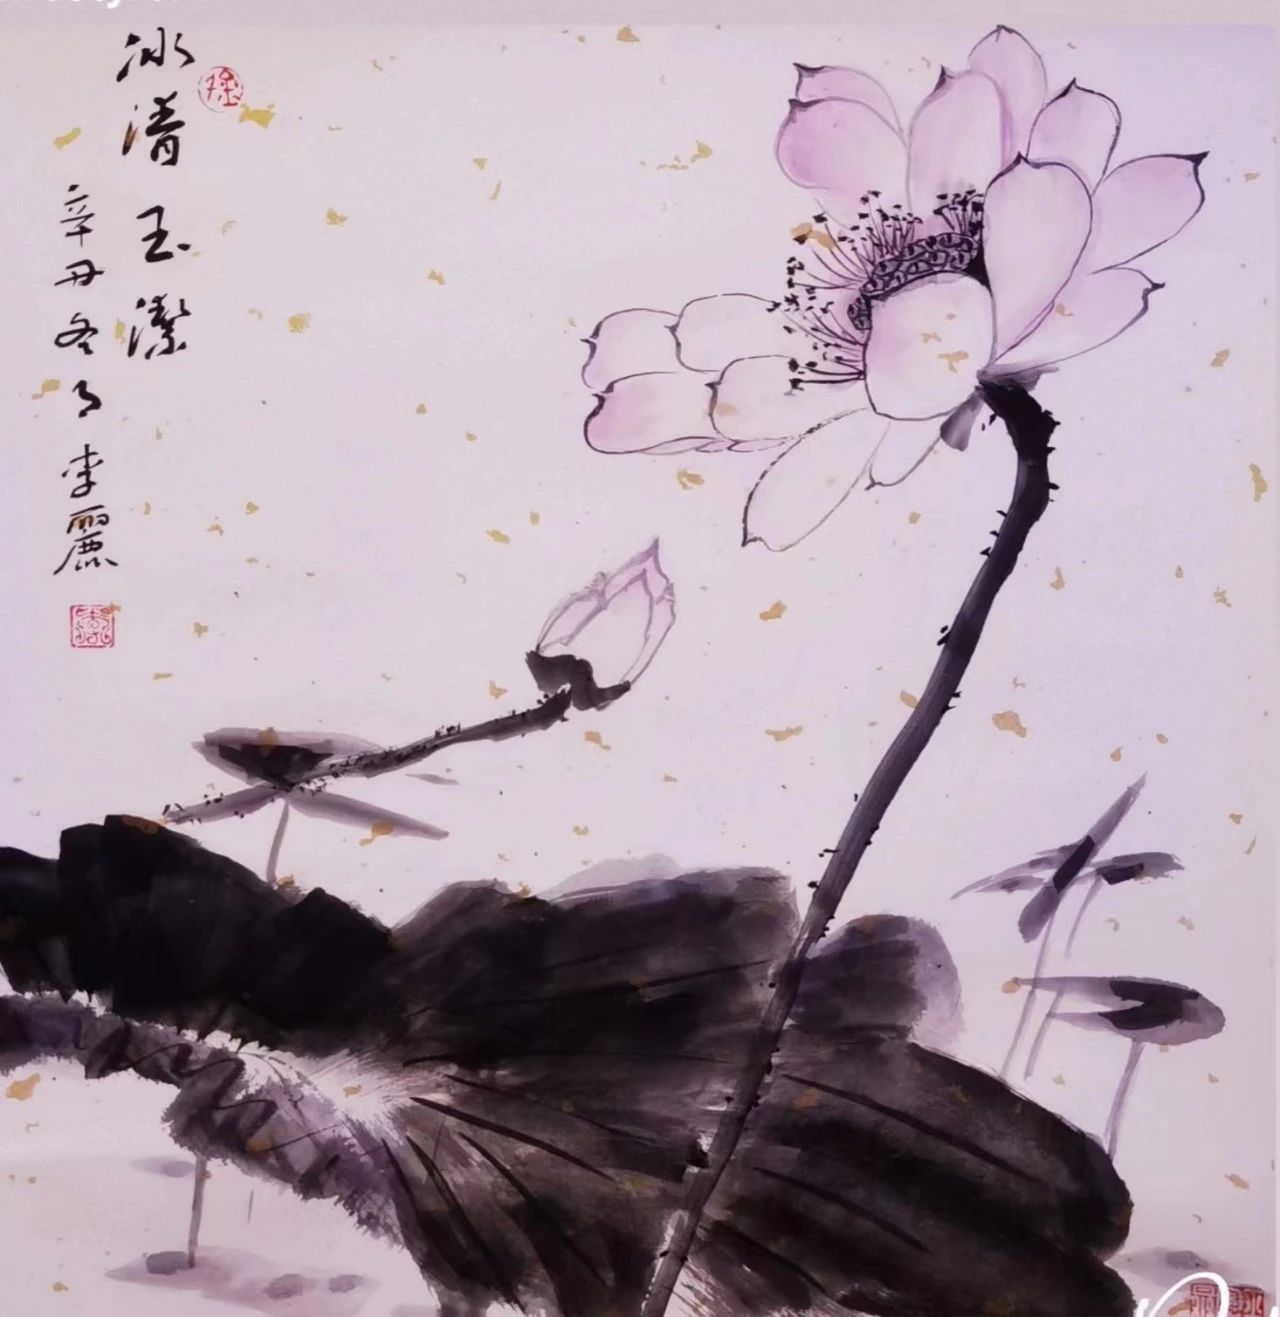 冰清玉潔
辛丑冬月李麗